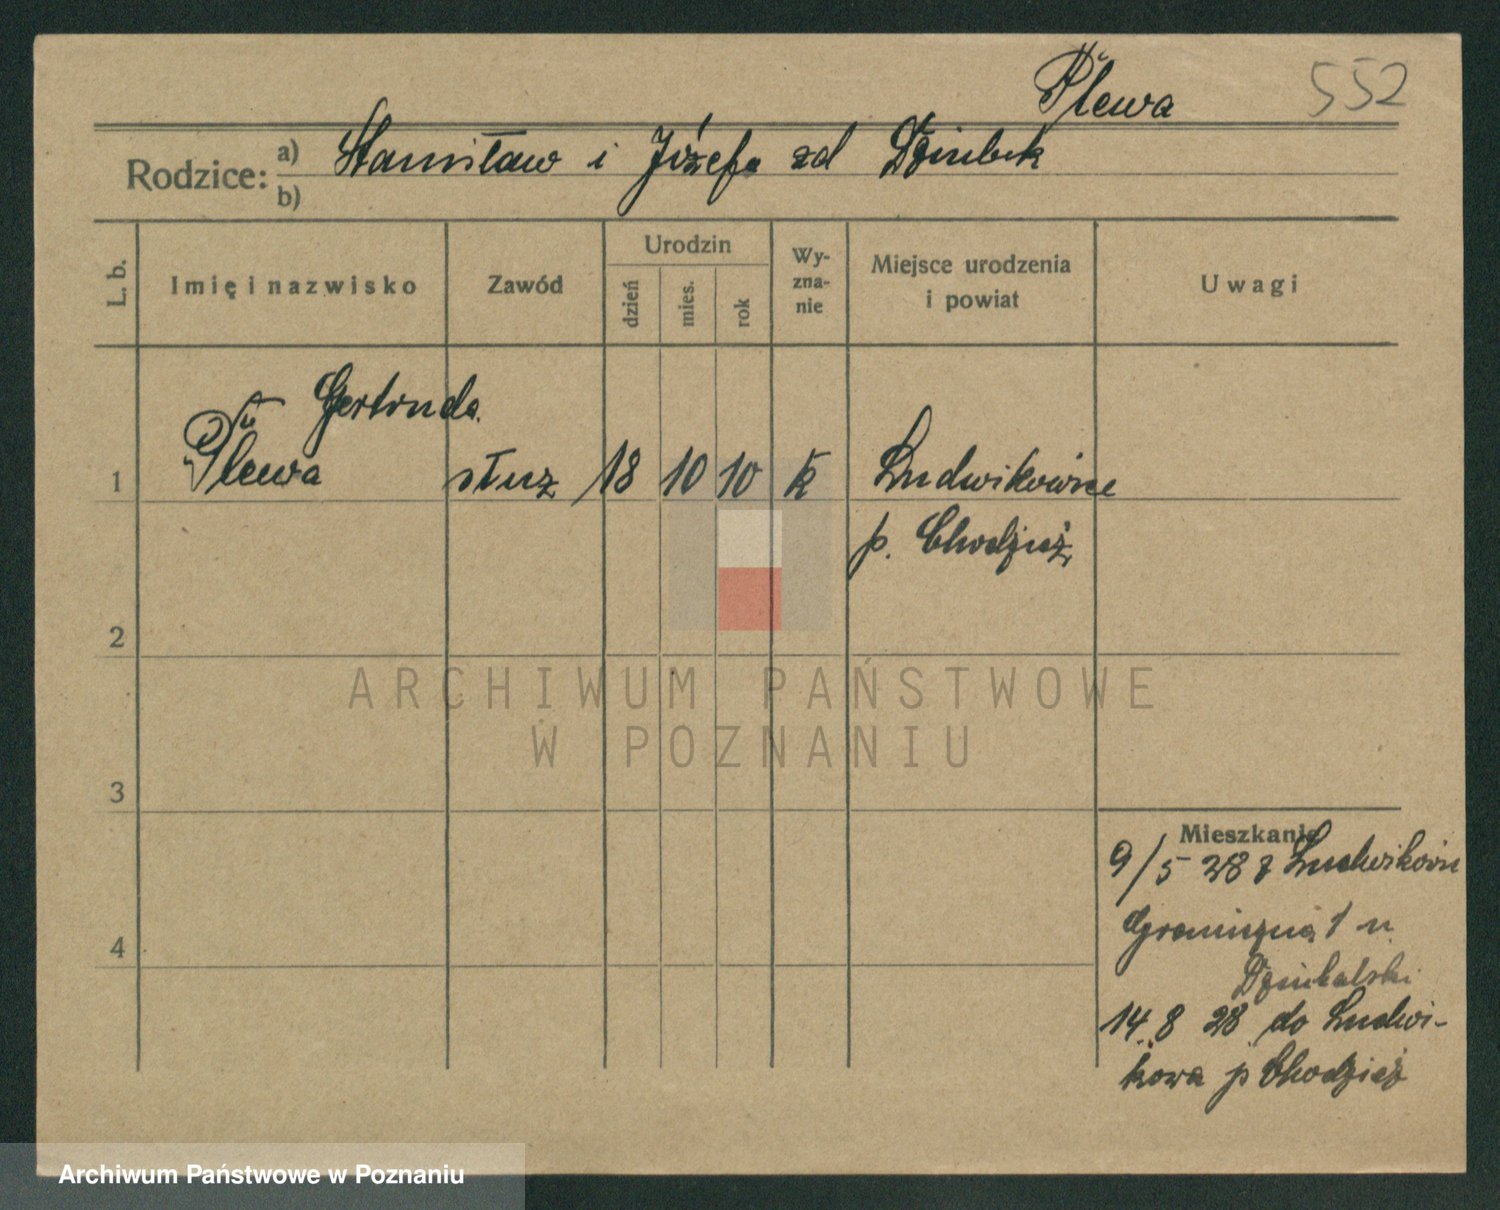 Plewa 552
Rodzice: a) Stanisław i Józefa zd Dziubek
b)
L. b. Imię i nazwisko Zawód Urodzin dzień mies. rok Wy-zna-nie Miejsce urodzenia i powiat Uwagi
Gertruda
1 Plewa służ 18 10 10 k Ludwikowie
p. Chodzież
2
ARCHIWUM PAŃSTWOWE
W POZNANIU
3
Mieszkanie
9/5 28 z Ludwikowie
4 Graniczna 1 u
Dziubalski
14.8 28 do Ludwi-
kowa p Chodzież
Archiwum Państwowe w Poznaniu